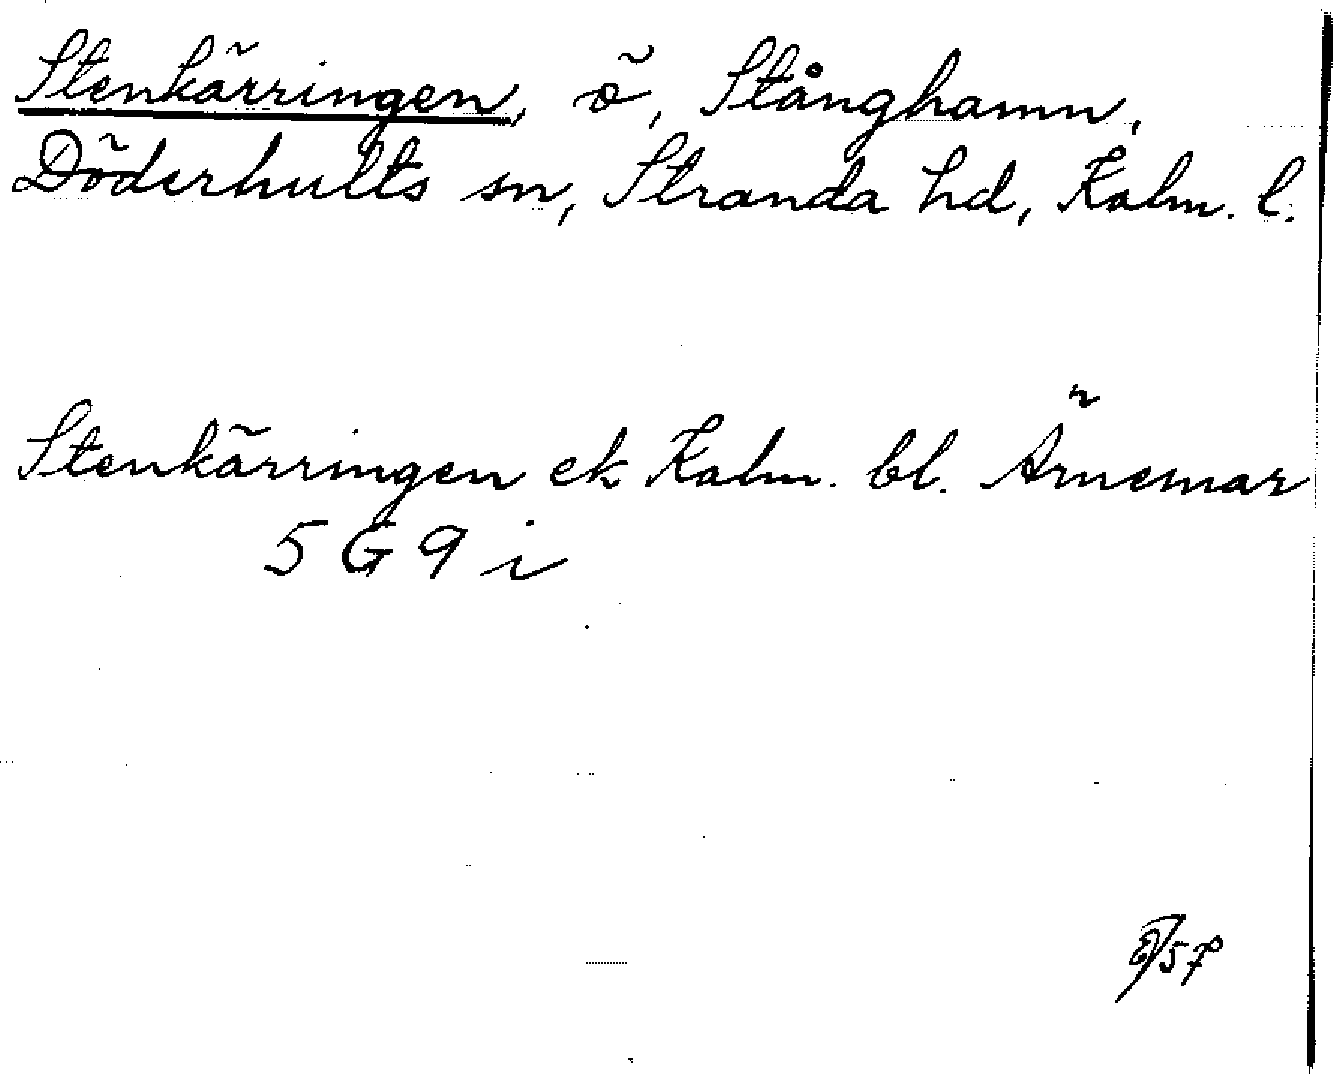 Stenkärringen, ö, Stånghamn,
Döderhults sn, Stranda hd, Kalm. l.
Stenkärringen ek Kalm. bl. Ärnemar
5 G 9 i